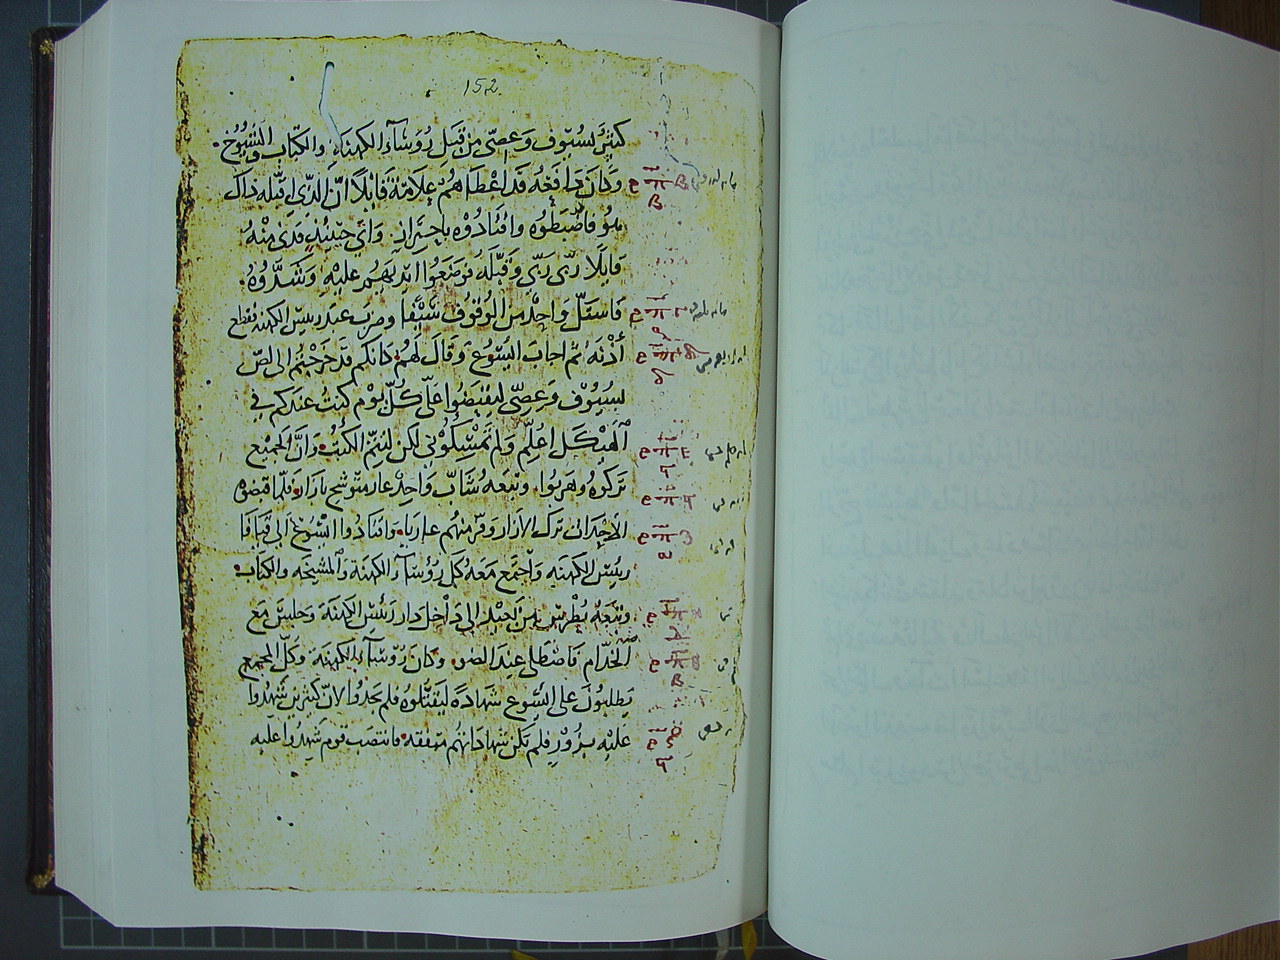 152
كثيرٌ بسُيُوف وَعِصِّى مِن قِبَل رُؤسَآء الكهنَة والكتّاب والشيُوُخ.
وَكانَ دَافِعُه قد اعْطَاهُم عَلامَةً قائِلاً انّ الذّي اقبّله ذاكَ
هُو فاضْبطوُه واقتادُوْه باحتِرازٍ وَاتي حِينَئِذٍ فدَنى مِنْهُ
قائِلاً ربّي ربّي وَقبَّلهُ فوضعُوا ايديَهُم عليْهِ وَشَدّوُهُ.
فاسْتلّ وَاحِدٌ من الوُقوُف سَيْفًا وضرَب عَبْدَ رئيس الكهنه فقطع
أذْنَهُ ثم اجابَ ايسُوعْ وَقالَ لهُم كانكم قدْ خرَجْتُم الى لصّ
بسُيُوْف وَعِصِّى لتقبضُوا عَلىّ كُلّ يوْمٍ كنتُ عندكم في
الهَيْكَل اعُلِّم وَلم تمْسِكُوْني لكن لتتِمّ الكُتُبُ وَانَّ الجميْع
تركُوهُ وهَربُوا. وتبَعهُ شابّ وَاحِدٌ عارٍ متوشح بازار فلمّا قبضوه
الاحْدَاث ترَك الازار وَفرّ منهُم عارياً. وَاقتادُوا ايسُوعْ الى قيافا
رييْس الكهنَه وَاجْتمع مَعَهُ كل رؤسَآء الكهنة والمشيَخَه والكتاب
وتبَعَهُ بُطرُس مِن بَعِيْدٍ الي دَاخِل دار رئيْس الكهنَة وَجلسَ مَع
الخدّام فاصْطلى عِندَ الضو. وَكانَ رؤسَآء الكهنَة وكلّ المجمع
يَطلبُونَ على ايسُوع شهَادَةً ليَقتلوُه فلم يجدُوا لانّ كثيرين شهدُوا
عليْه بزُوْرٍ فلم تكن شهاداتهُم متفقه فانتصَبَ قوم شهدُوا عليه